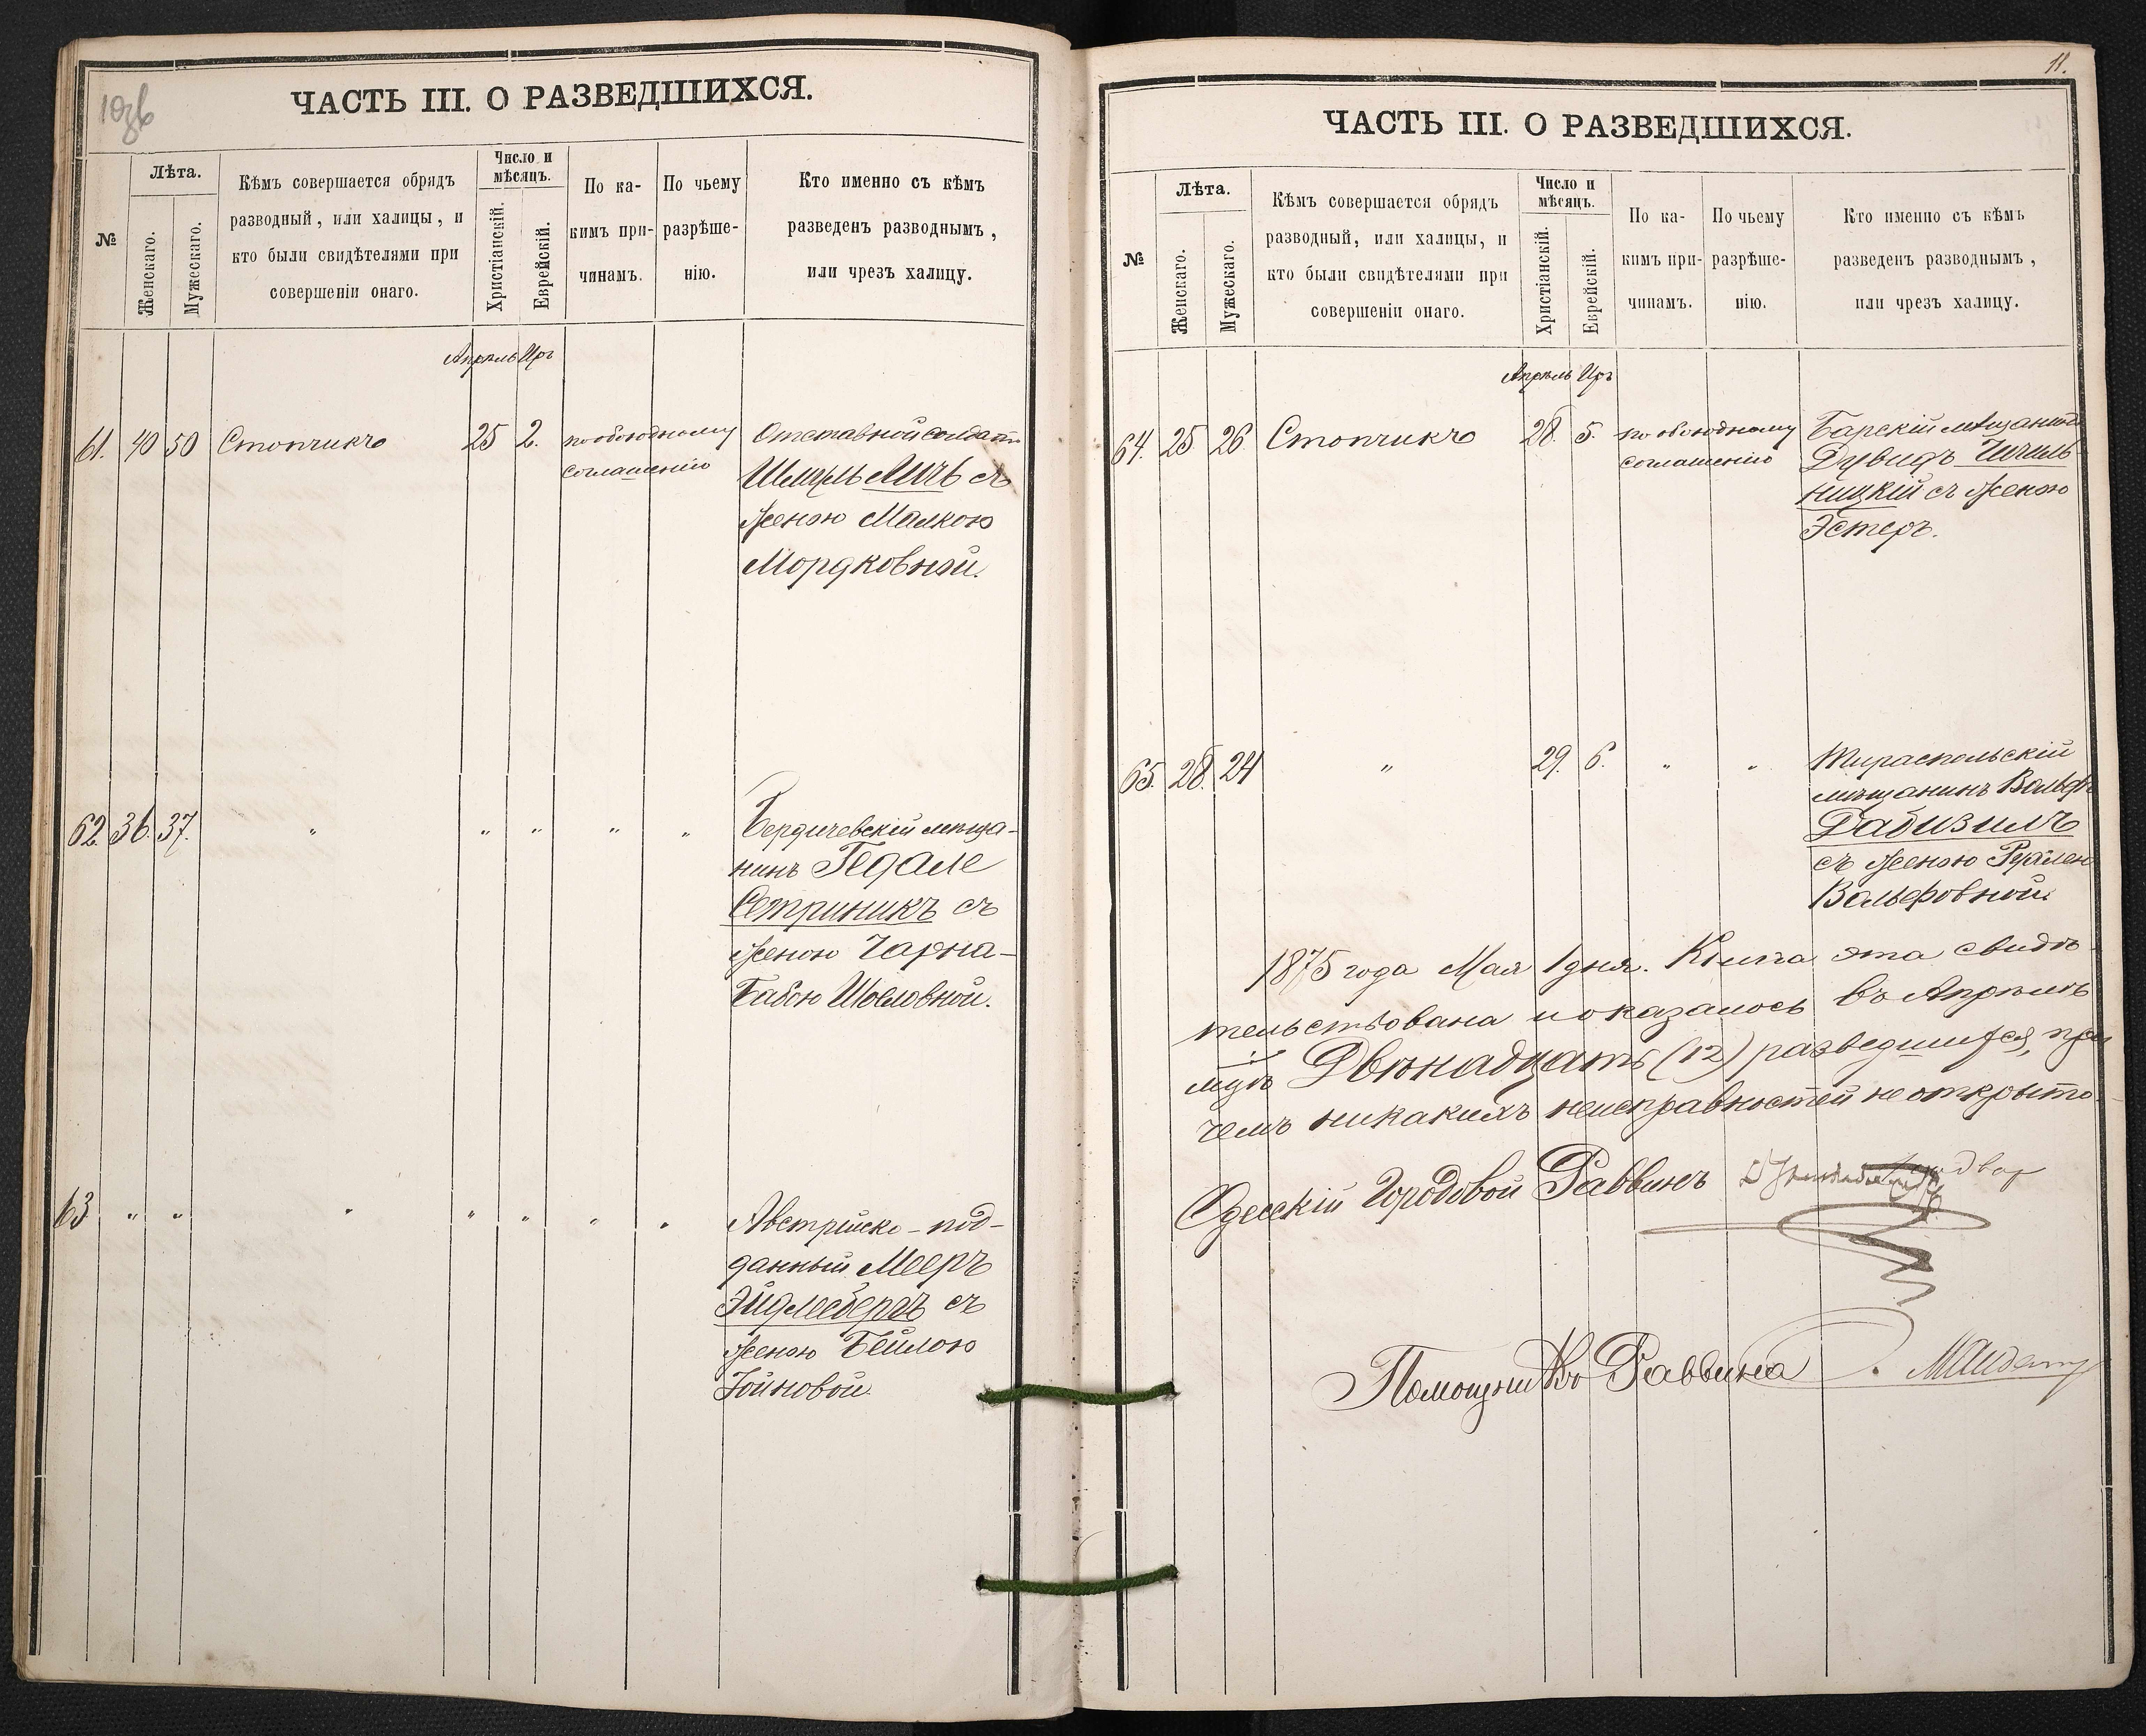 ЧАСТЬ III. О РАЗВЕДШИХСЯ.
№
Лѣта.
Женскаго.
Мужескаго.
Кѣмъ совершается обрядъ
разводный, или халицы, и
кто были свидѣтелями при
совершеніи онаго.
Число и
мѣсяцъ.
Христіанскій.
Еврейскій.
По ка-
кимъ при-
чинамъ.
По чьему
разрѣше-
нію.
Кто именно съ кѣмъ
разведенъ разводнымъ,
или чрезъ халицу.
Апрель Иръ
61. 40 50 Стопчикъ 25 2. по обоюдному Отставной солдатъ
соглашенію Шмуль Личъ съ
женою Малкою
Мордковной.
62. 36. 37. " " " " " Бердичевскій мѣща-
нинъ Гедале
Сетриникъ съ
женою Чарна-
Бабою Шоеловной.
63 " " " " " " " Австрійско-под-
данный Мееръ
Эйдлебергъ съ
женою Бейлою
Іойновой.
11.
ЧАСТЬ III. О РАЗВЕДШИХСЯ.
№
Лѣта.
Женскаго.
Мужескаго.
Кѣмъ совершается обрядъ
разводный, или халицы, и
кто были свидѣтелями при
совершеніи онаго.
Число и
мѣсяцъ.
Христіанскій.
Еврейскій.
По ка-
кимъ при-
чинамъ.
По чьему
разрѣше-
нію.
Кто именно съ кѣмъ
разведенъ разводнымъ,
или чрезъ халицу.
Апрель Иръ
64. 25 26 Стопчикъ 28. 5. по обоюдному Барскій мѣщанинъ
соглашенію Дувидъ Чичель-
ницкій съ женою
Эстеръ.
65. 28. 24 " 29. 6. " " Тираспольскій
мѣщанинъ Вольфъ
Габизилъ
съ женою
Вольфовной.
1875 года Мая 1 дня. Книга эта свидѣ-
тельствована и оказалось въ Апрелѣ
м-цѣ Двѣнадцать (12) разведшихся, при
чемъ никакихъ неисправностей не открыто.
Одесскій Городовой Раввинъ
Помощникъ Раввина